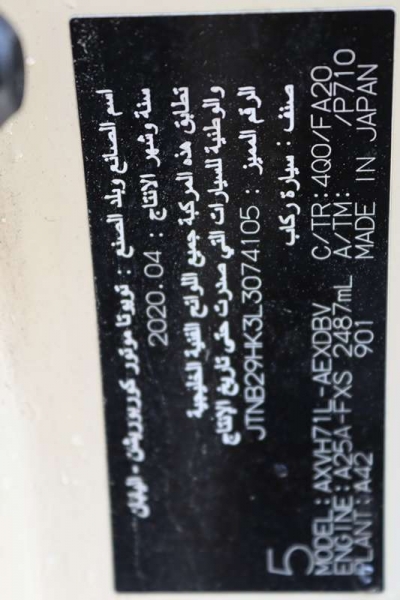 اسم الصانع وبلد الصنع : تويوتا موتور كوربوريشن - اليابان
سنة وشهر الإنتاج : 2020.04
تطابق هذه المركبة جميع اللوائح الفنية الخليجية
والوطنية للسيارات التي صدرت حتى تاريخ الإنتاج
الرقم المميز : JTNB29HK3L3074105
صنف : سيارة ركاب
5
MODEL:AXVH71L-AEXDBV C/TR:4Q0/FA20
ENGINE:A25A-FXS 2487mL A/TM: /P710
PLANT:A42 901 MADE IN JAPAN